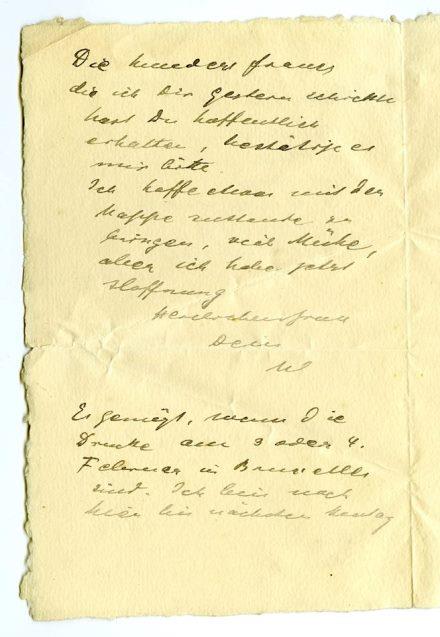 Die hundert francs
die ich Dir gestern schickte
hast Du hoffentlich
erhalten, bestätige es
mir bitte.
Ich hoffe etwas mit der
Mappe zustande zu
bringen, viel Mühe,
aber ich habe jetzt
Hoffnung
Dein
W
Es genügt, wenn die
Drucke am 3 oder 4.
Februar in Bruxelles
sind. Ich bin noch
hier bis nächsten Montag